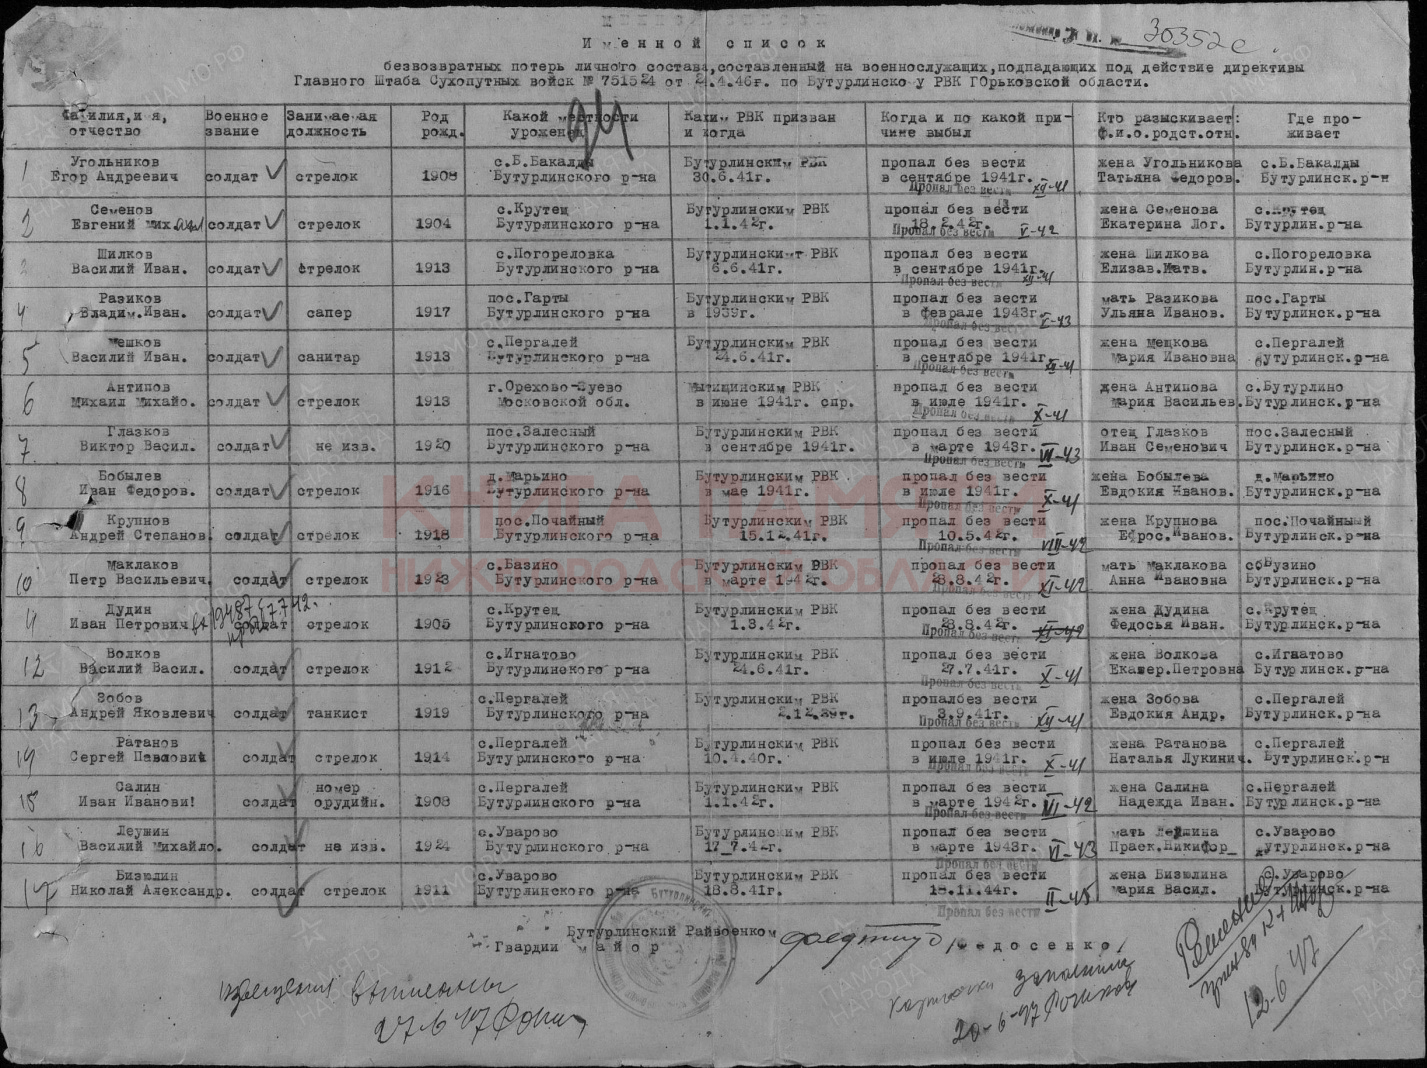 30352с.
Именной список
безвозвратных потерь личного состава,составленный на военнослужащих,подпадающих под действие директивы
Главного Штаба Сухопутных войск № 751524 от 24.4.46г. по Бутурлинско у РВК ГОрьковской области.
Фамилия,и я, отчество Военное звание Занимаемая должность Род рожд. Какой местности уроженец Каким РВК призван и когда Когда и по какой причине выбыл Кто разыскивает: ф.и.о.родст.отн. Где проживает
24
1 Угольников Егор Андреевич солдат стрелок 1908 с.Б.Бакалды Бутурлинского р-на Бутурлинским РВК 30.6.41г. пропал без вести в сентябре 1941г. Пропал без вести XII-41 жена Угольникова Татьяна Федоров. с.Б.Бакалды Бутурлинск.р-н
2 Семенов Евгений Мих. солдат стрелок 1904 с.Крутец Бутурлинского р-на Бутурлинским РВК 1.1.42г. пропал без вести 18.2.42г. Пропал без вести V-42 жена Семенова Екатерина Лог. с.Крутец Бутурлин.р-на
3 Шилков Василий Иван. солдат стрелок 1913 с.Погореловка Бутурлинского р-на РВК 6.6.41г. пропал без вести в сентябре 1941г. Пропал без вести XII-41 жена Шилкова Елизав.Матв. с.Погореловка Бутурлин.р-на
4 Разиков Владим.Иван. солдат сапер 1917 пос.Гарты Бутурлинского р-на Бутурлинским РВК в 1939г. пропал без вести в феврале 1943г. Пропал без вести V-43 мать Разикова Ульяна Иванов. пос.Гарты Бутурлинск.р-на
5 Мешков Василий Иван. солдат санитар 1913 с.Пергалей Бутурлинского р-на Бутурлинским РВК 24.6.41г. пропал без вести в сентябре 1941г. Пропал без вести XII-41 жена Мешкова Мария Ивановна с.Пергалей Бутурлинск.р-на
6 Антипов Михаил Михайо. солдат стрелок 1913 г.Орехово-Зуево Московской обл. Мытищинским РВК в июне 1941г. спр. пропал без вести в июле 1941г. Пропал без вести X-41 жена Антипова Мария Васильев. с.Бутурлино Бутурлинск.р-на
7. Глазков Виктор Васил. солдат не изв. 1920 пос.Залесный Бутурлинского р-на Бутурлинским РВК в сентябре 1941г. пропал без вести в марте 1943г. Пропал без вести VI-43 отец Глазков Иван Семенович пос.Залесный Бутурлинск.р-на
8 Бобылев Иван Федоров. солдат стрелок 1916 д.Марьино Бутурлинского р-на Бутурлинским РВК в мае 1941г. пропал без вести в июле 1941г. Пропал без вести X-41 жена Бобылева Евдокия Иванов. д.Марьино Бутурлинск.р-на
9 Крупнов Андрей Степанов. солдат стрелок 1918 пос.Почайный Бутурлинского р-на Бутурлинским РВК 15.12.41г. пропал без вести 10.5.42г. Пропал без вести VIII-42 жена Крупнова Ефрос.Иванов. пос.Почайный Бутурлинск.р-на
10 Маклаков Петр Васильевич. солдат стрелок 1923 с.Базино Бутурлинского р-на Бутурлинским РВК в марте 1942г. пропал без вести 23.8.42г. Пропал без вести XI-42 мать Маклакова Анна Ивановна сбБузино Бутурлинск.р-на
11 Дудин Иван Петрович солдат стрелок 1905 с.Крутец Бутурлинского р-на Бутурлинским РВК 1.3.42г. пропал без вести 23.8.42г. Пропал без вести XI-42 жена Дудина Федосья Иван. с.Крутец Бутурлинск.р-на
12 Волков Василий Васил. солдат стрелок 1912 с.Игнатово Бутурлинского р-на Бутурлинским РВК 24.6.41г. пропал без вести 27.7.41г. Пропал без вести X-41 жена Волкова Екатер.Петровна с.Игнатово Бутурлинск.р-на
13 Зобов Андрей Яковлевич солдат танкист 1919 с.Пергалей Бутурлинского р-на Бутурлинским РВК 2.12.39г. пропалбез вести 3.9.41г. Пропал без вести XII-41 жена Зобова Евдокия Андр. с.Пергалей Бутурлинск.р-на
14 Ратанов Сергей Павлович солдат стрелок 1914 с.Пергалей Бутурлинского р-на Бутурлинским РВК 10.4.40г. пропал без вести в июле 1941г. Пропал без вести X-41 жена Ратанова Наталья Лукинич. с.Пергалей Бутурлинск.р-н
15 Салин Иван Иванови! солдат номер орудийн. 1908 с.Пергалей Бутурлинского р-на Бутурлинским РВК 1.1.42г. пропал без вести в марте 1942г. Пропал без вести VI-42 жена Салина Надежда Иван. с.Пергалей Бутурлинск.р-на
16 Леушин Василий Михайло. солдат не изв. 1924 с.Уварово Бутурлинского р-на Бутурлинским РВК 17_7.42г. пропал без вести в марте 1943г. Пропал без вести VI-43 мать Леушина Праск.Никифор_ с.Уварово Бутурлинск.р-на
17 Бизюлин Николай Александр. солдат стрелок 1911 с.Уварово Бутурлинского р-на Бутурлинским РВК 18.8.41г. пропал без вести 18.11.44г. Пропал без вести II-45 жена Бизюлина Мария Васил. с.Уварово Бутурлинск.р-на
КНИГА ПАМЯТИ
НИЖЕГОРОДСКОЙ ОБЛАСТИ
Бутурлинский Райвоенком
Гвардии майор /Федосенко/
извещения выписаны
27-6-47
карточки заполнила
20-6-47
12-6 47